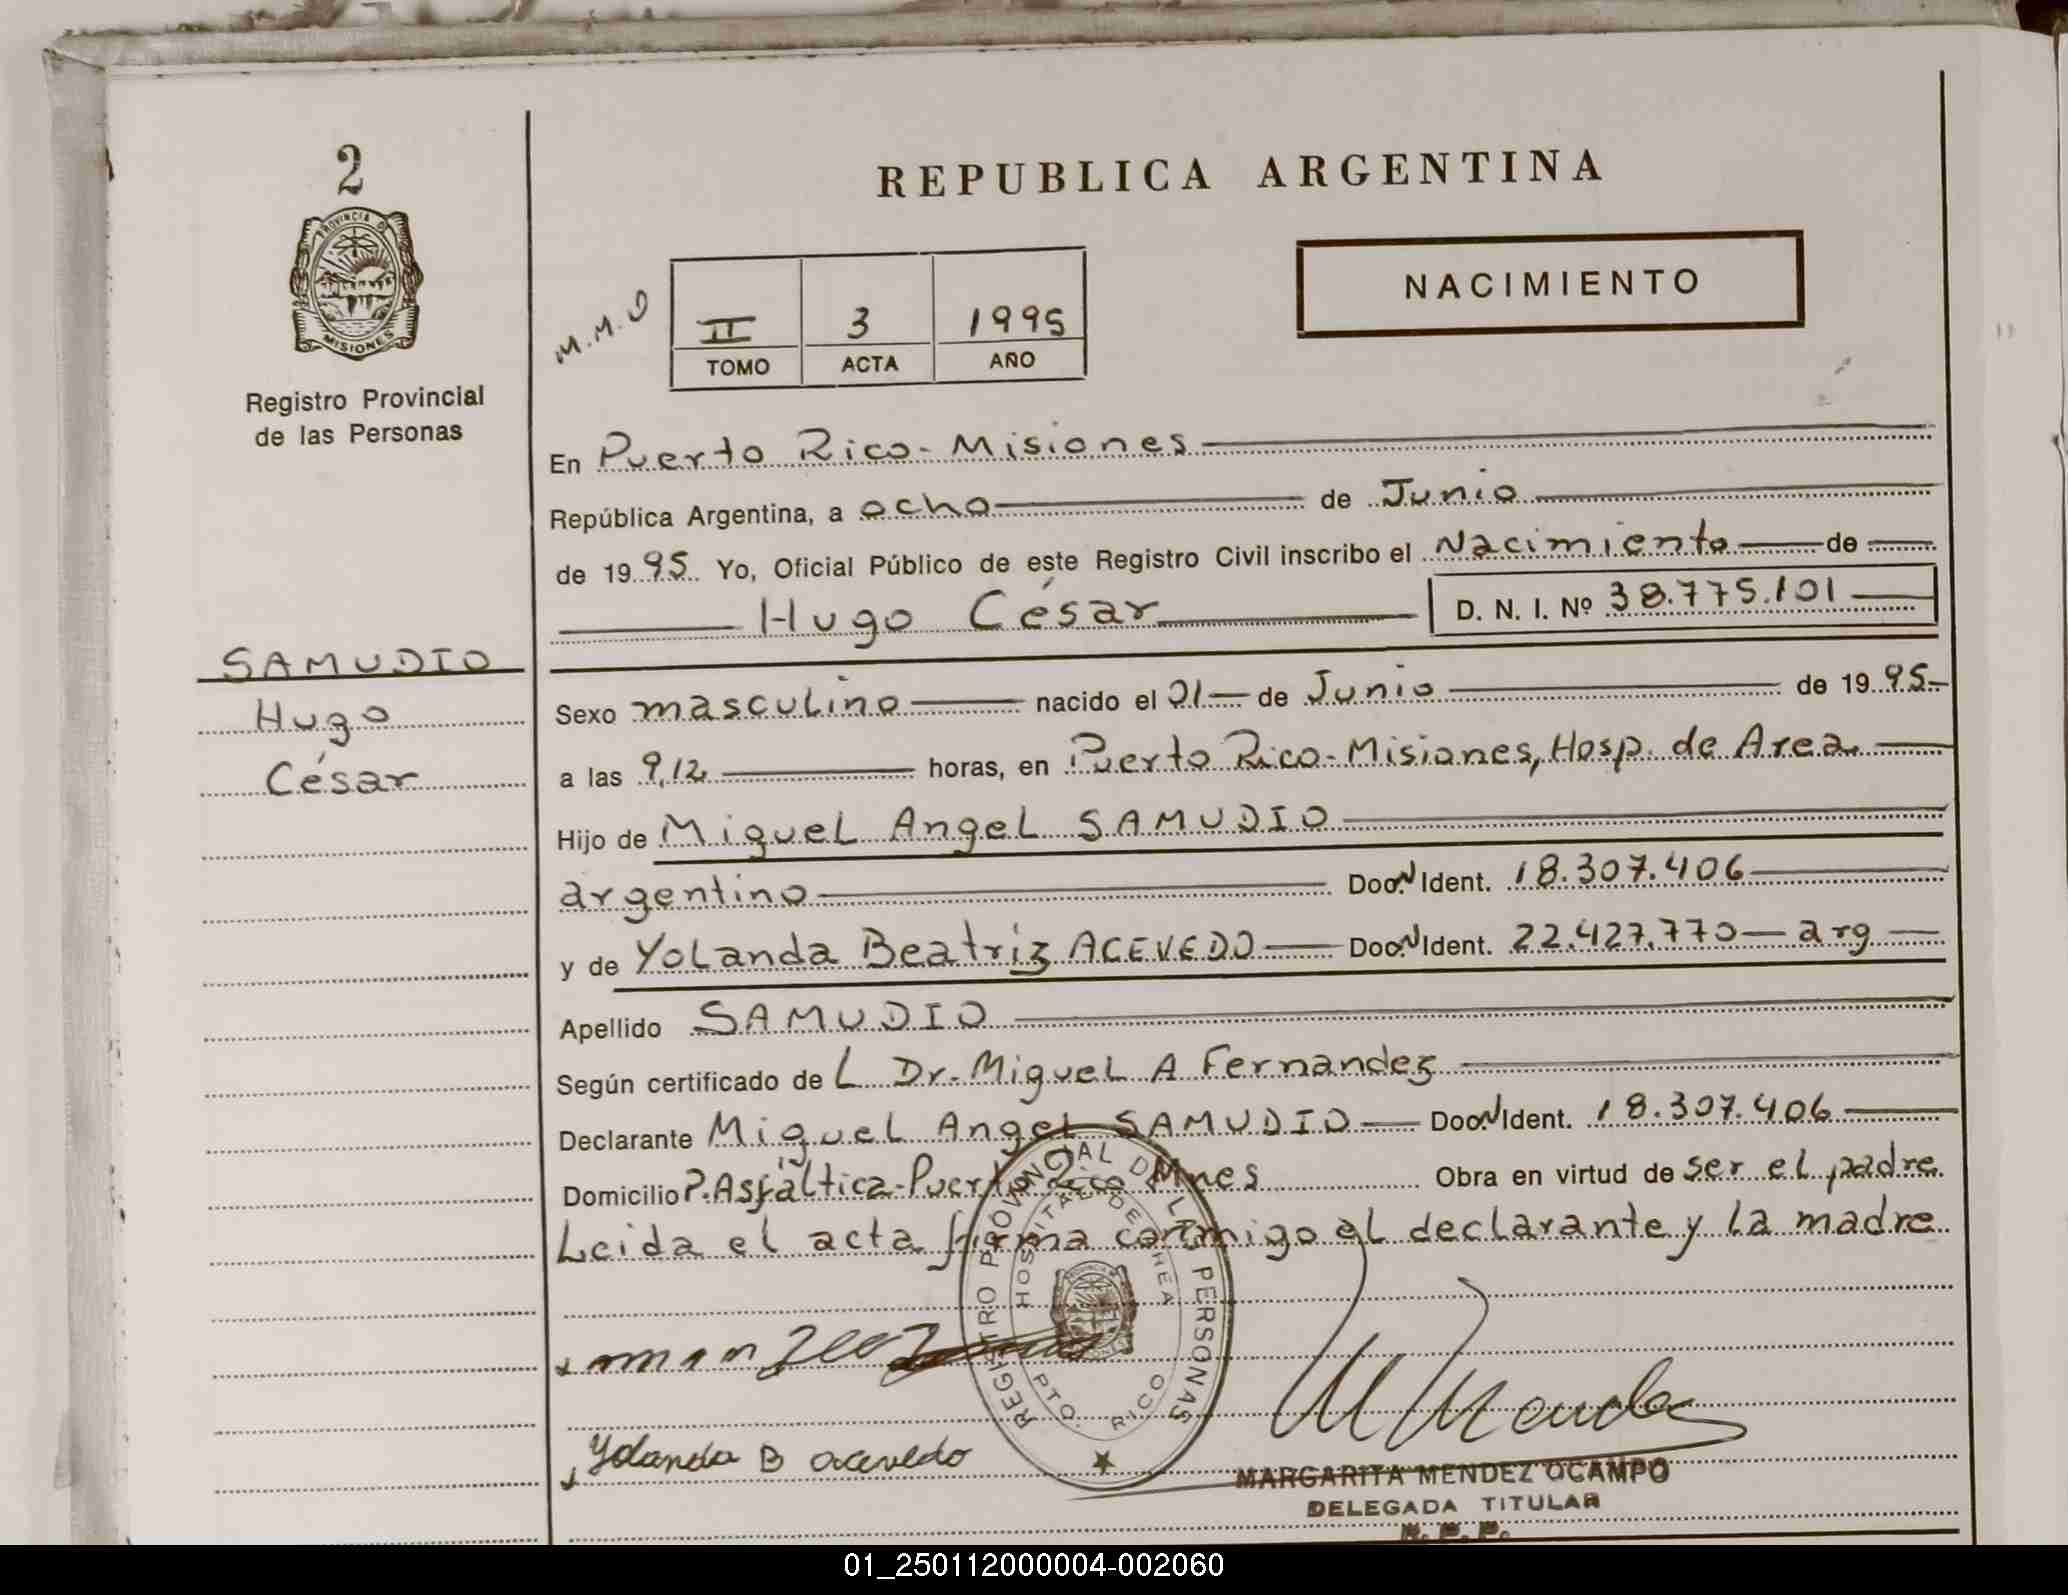 2
PROVINCIA DE
MISIONES
Registro Provincial
de las Personas
SAMUDIO
Hugo
César
REPUBLICA ARGENTINA
NACIMIENTO
M.M.O
II 3 1995
TOMO ACTA AÑO
En Puerto Rico - Misiones
República Argentina, a ocho de Junio
de 1995 Yo, Oficial Público de este Registro Civil inscribo el Nacimiento de
Hugo César D. N. I. Nº 38.775.101
Sexo masculino nacido el 01 de Junio de 1995
a las 9,12 horas, en Puerto Rico - Misiones, Hosp. de Area
Hijo de Miguel Angel SAMUDIO
argentino Doc. N Ident. 18.307.406
y de Yolanda Beatriz ACEVEDO Doc. N Ident. 22.427.770 - arg
Apellido SAMUDIO
Según certificado de L Dr. Miguel A Fernandez
Declarante Miguel Angel SAMUDIO Doc. N Ident. 18.307.406
Domicilio P. Asfáltica - Puerto Rico Mnes Obra en virtud de ser el padre.
Leida el acta firma conmigo el declarante y la madre
REGISTRO PROVINCIAL DE LAS PERSONAS
HOSPITAL DE AREA
PTO. RICO
Yolanda B acevedo
M Mendez
MARGARITA MENDEZ OCAMPO
DELEGADA TITULAR
R. P. P.
01_250112000004-002060